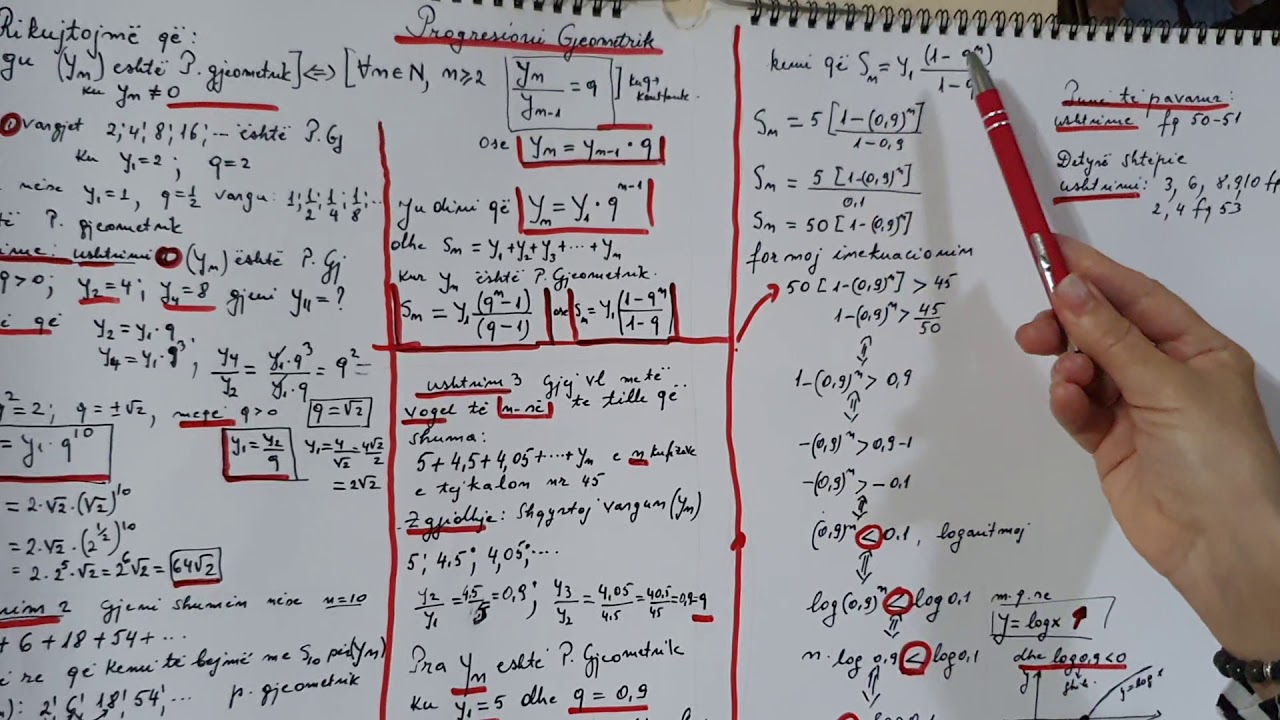 Progresioni Gjeometrik
Rikujtojmë që:
gu (yn) është P. gjeometrik] <=> [∀n∈N, n≥2 yn/yn-1 = q ]
ku yn ≠ 0
vargjet 2; 4; 8; 16; ... është P. Gj
ku y1=2 ; q=2
nëse y1=1, q=1/2 vargu: 1; 1/2; 1/4; 1/8; ...
të P. gjeometrik
ushtrimi (yn) është P. Gj
q>0; y2=4; y4=8 gjeni y11=?
që
y2 = y1·q
y4 = y1·q^3 ; y4/y2 = y1·q^3/y1·q = q^2 =
q^2=2; q=±√2, meqë q>0 q=√2
= y1·q^10 y1=y2/q y1=4/√2=4√2/2
= 2√2
= 2·√2·(√2)^10
= 2·√2·(2^1/2)^10
= 2·2^5·√2=2^6√2= 64√2
2 Gjeni shumën nëse n=10
+ 6 + 18 + 54 + ...
re që kemi të bejmë me S10 për (yn)
): 2; 6; 18; 54; ... p. gjeometrik
ose yn = yn-1·q
yn = y1·q^n-1
dhe Sn = y1+y2+y3+...+yn
kur yn është P. Gjeometrik.
Sn = y1 (q^n-1)/(q-1) ose Sn=y1 (1-q^n)/(1-q)
ushtrim 3 Gjej vl më të
vogel të n-së te tillë që
shuma:
5 + 4,5 + 4,05 + ... + yn e n kufizave
e tejkalon nr 45
Zgjidhje: Shqyrtoj vargun (yn)
5; 4,5; 4,05; ...
y2/y1 = 4,5/5 = 0,9 ; y3/y2 = 4,05/4,5 = 40,5/45 = 0,9 = q
Pra yn është P. Gjeometrik
ku y1=5 dhe q=0,9
kemi që Sn = y1 (1-q^n)/1-q
Sn = 5 [1-(0,9)^n]/1-0,9
Sn = 5 [1-(0,9)^n]/0,1
Sn = 50 [1-(0,9)^n]
formoj inekuacionin
50 [1-(0,9)^n] > 45
1-(0,9)^n > 45/50
1-(0,9)^n > 0,9
-(0,9)^n > 0,9-1
-(0,9)^n > -0,1
(0,9)^n < 0,1, logaritmoj
log(0,9)^n < log 0,1
n·log 0,9 < log 0,1
m.q.se
y=logx
dhe log 0,9 < 0
y
y=log x
Punë të pavarur:
ushtrime fq 50-51
Detyrë shtëpie
ushtrimi: 3, 6, 8, 9, 10 fq
2, 4 fq 53